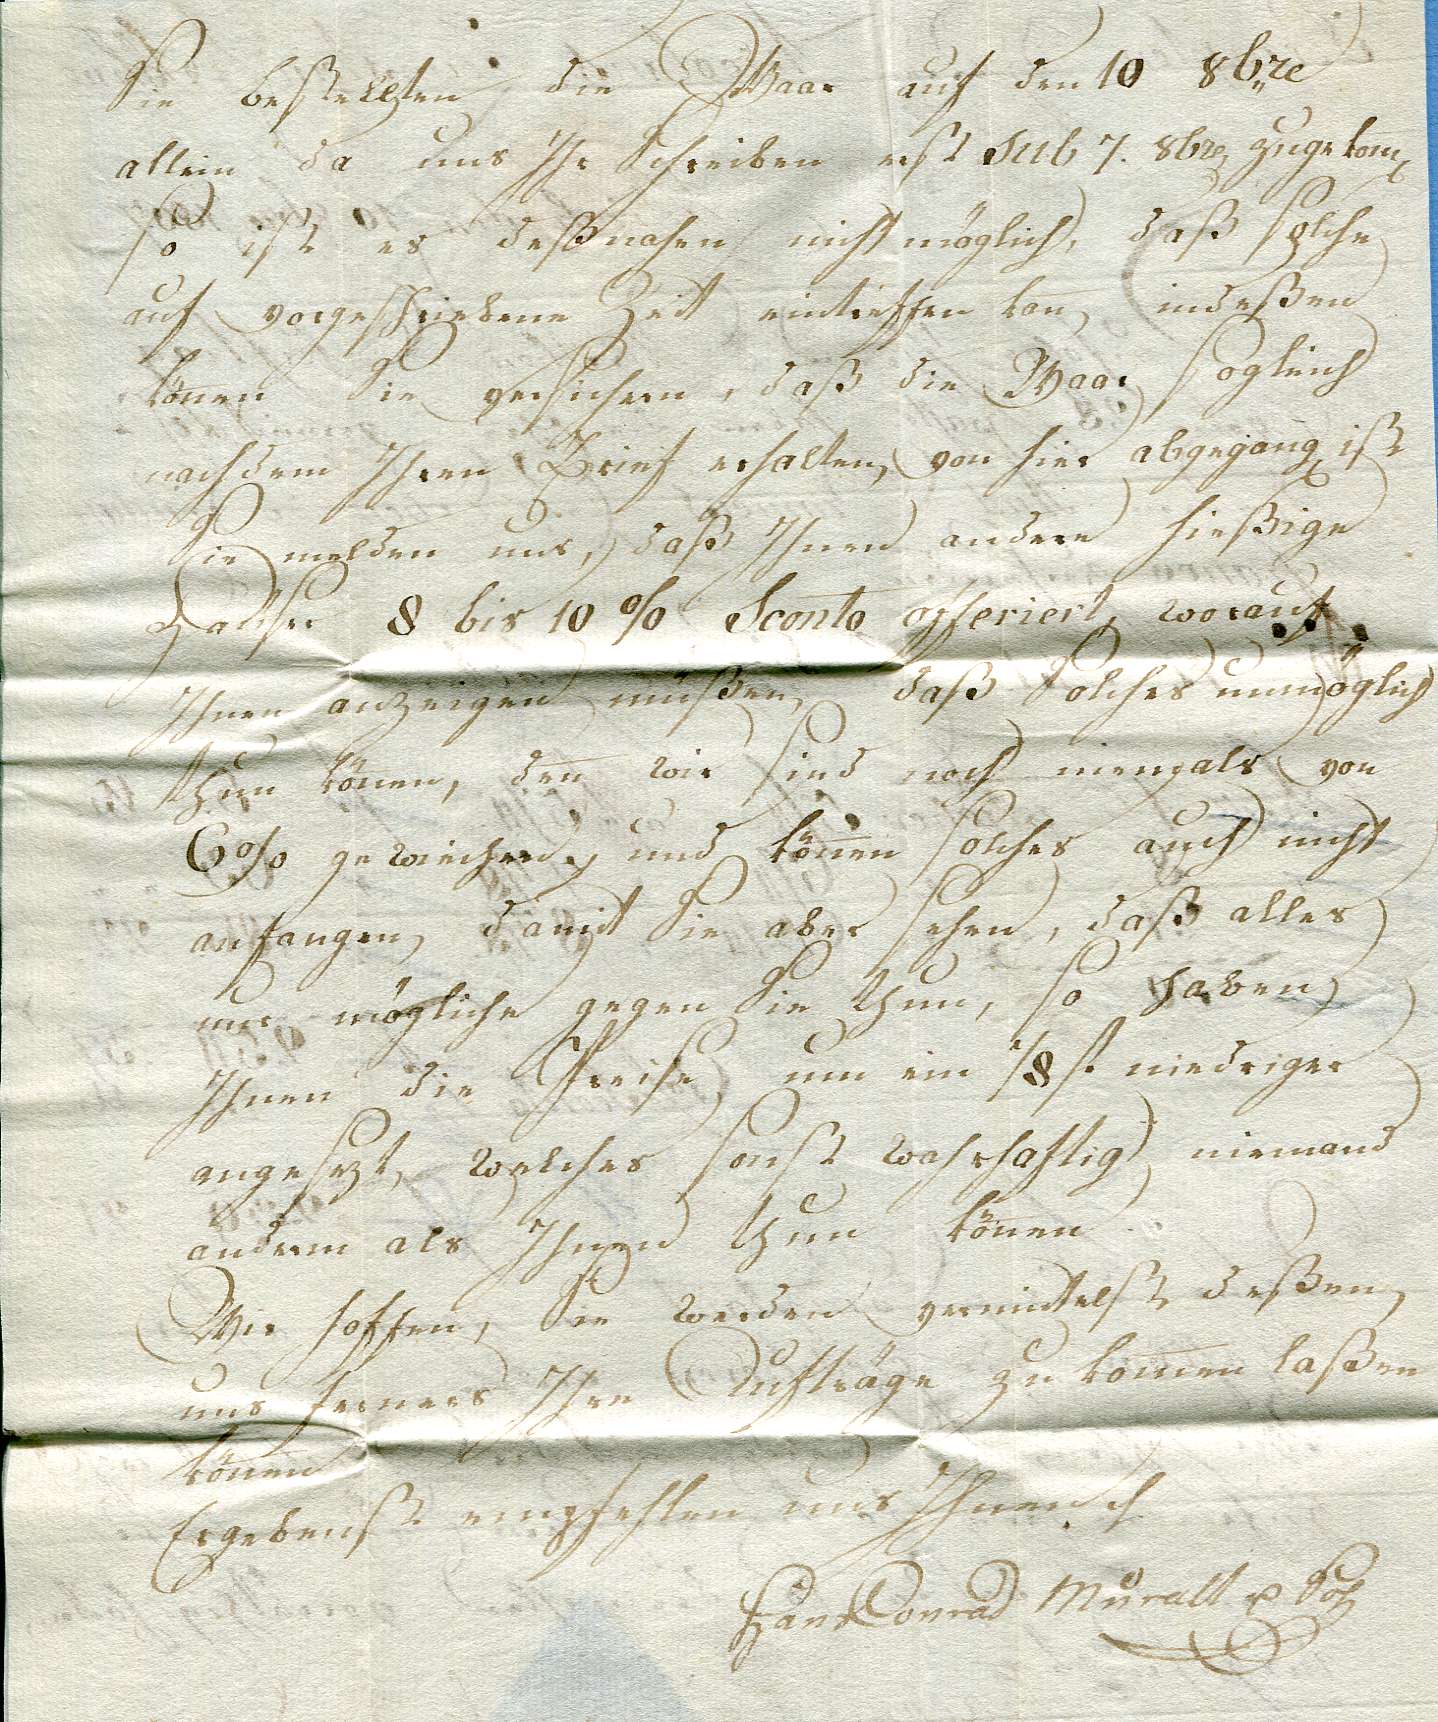 Sie bestellten die Waar auf den 10 8bre
allein da uns Ihr Schreiben erst sub 7. 8bre zugekom̄
so ist es deßnahen nicht möglich, daß solche
auf vorgeschriebene Zeit eintreffen kan, indeßen
können Sie versichern, daß die Waar sogleich
nachdem Ihren Brief erhalten, von hier abgegang ist
Sie melden uns, daß Ihnen andere hießige
Häüser 8 bis 10 % Sconto offeriert, worauf
Ihnen anzeigen müßen, daß solches unmöglich
thun könen, den̄ wir sind noch niemals von
6% gewichen, und kön̄en solches auch nicht
anfangen, damit Sie aber sehen, daß alles
nur mögliche gegen Sie thun, so haben
Ihnen die Preise um ein 1/8 f niedriger
angesezt, welches sonst wahrhaftig niemand
anderm als Ihnen thun kön̄en
Wir hoffen, Sie werden vermittelst deßen,
uns ferners Ihre Aufträge zu kom̄en laßen
kön̄en
Ergebenst empfehlen uns Ihnen
Hans Conrad Muralt & Sohn